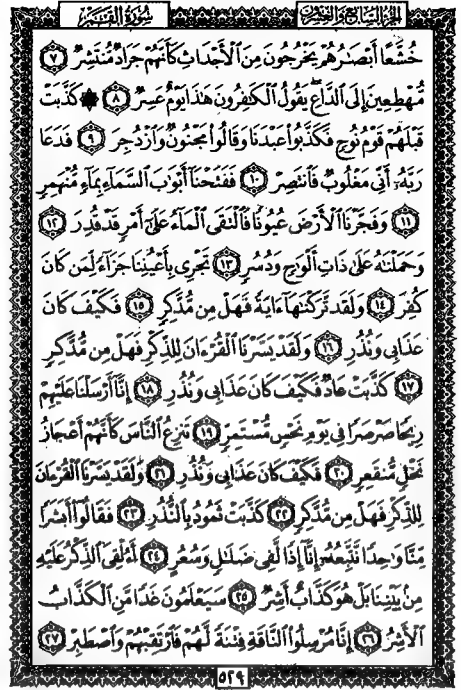 سُورَةُ القَمَر الجُزءُ السَّابِعُ وَالعِشْرُونَ
خُشَّعًا أَبْصَٰرُهُمْ يَخْرُجُونَ مِنَ ٱلْأَجْدَاثِ كَأَنَّهُمْ جَرَادٌ مُّنتَشِرٌ ٧
مُّهْطِعِينَ إِلَى ٱلدَّاعِ يَقُولُ ٱلْكَٰفِرُونَ هَٰذَا يَوْمٌ عَسِرٌ ٨ ۞ كَذَّبَتْ
قَبْلَهُمْ قَوْمُ نُوحٍ فَكَذَّبُوا۟ عَبْدَنَا وَقَالُوا۟ مَجْنُونٌ وَٱزْدُجِرَ ٩ فَدَعَا
رَبَّهُۥٓ أَنِّى مَغْلُوبٌ فَٱنتَصِرْ ١٠ فَفَتَحْنَآ أَبْوَٰبَ ٱلسَّمَآءِ بِمَآءٍ مُّنْهَمِرٍ
١١ وَفَجَّرْنَا ٱلْأَرْضَ عُيُونًا فَٱلْتَقَى ٱلْمَآءُ عَلَىٰٓ أَمْرٍ قَدْ قُدِرَ ١٢
وَحَمَلْنَٰهُ عَلَىٰ ذَاتِ أَلْوَٰحٍ وَدُسُرٍ ١٣ تَجْرِى بِأَعْيُنِنَا جَزَآءً لِّمَن كَانَ
كُفِرَ ١٤ وَلَقَد تَّرَكْنَٰهَآ ءَايَةً فَهَلْ مِن مُّدَّكِرٍ ١٥ فَكَيْفَ كَانَ
عَذَابِى وَنُذُرِ ١٦ وَلَقَدْ يَسَّرْنَا ٱلْقُرْءَانَ لِلذِّكْرِ فَهَلْ مِن مُّدَّكِرٍ
١٧ كَذَّبَتْ عَادٌ فَكَيْفَ كَانَ عَذَابِى وَنُذُرِ ١٨ إِنَّآ أَرْسَلْنَا عَلَيْهِمْ
رِيحًا صَرْصَرًا فِى يَوْمِ نَحْسٍ مُّسْتَمِرٍّ ١٩ تَنزِعُ ٱلنَّاسَ كَأَنَّهُمْ أَعْجَازُ
نَخْلٍ مُّنقَعِرٍ ٢٠ فَكَيْفَ كَانَ عَذَابِى وَنُذُرِ ٢١ وَلَقَدْ يَسَّرْنَا ٱلْقُرْءَانَ
لِلذِّكْرِ فَهَلْ مِن مُّدَّكِرٍ ٢٢ كَذَّبَتْ ثَمُودُ بِٱلنُّذُرِ ٢٣ فَقَالُوٓا۟ أَبَشَرًا
مِّنَّا وَٰحِدًا نَّتَّبِعُهُۥٓ إِنَّآ إِذًا لَّفِى ضَلَٰلٍ وَسُعُرٍ ٢٤ أَءُلْقِىَ ٱلذِّكْرُ عَلَيْهِ
مِنۢ بَيْنِنَا بَلْ هُوَ كَذَّابٌ أَشِرٌ ٢٥ سَيَعْلَمُونَ غَدًا مَّنِ ٱلْكَذَّابُ
ٱلْأَشِرُ ٢٦ إِنَّا مُرْسِلُوا۟ ٱلنَّاقَةِ فِتْنَةً لَّهُمْ فَٱرْتَقِبْهُمْ وَٱصْطَبِرْ ٢٧
٥٢٩